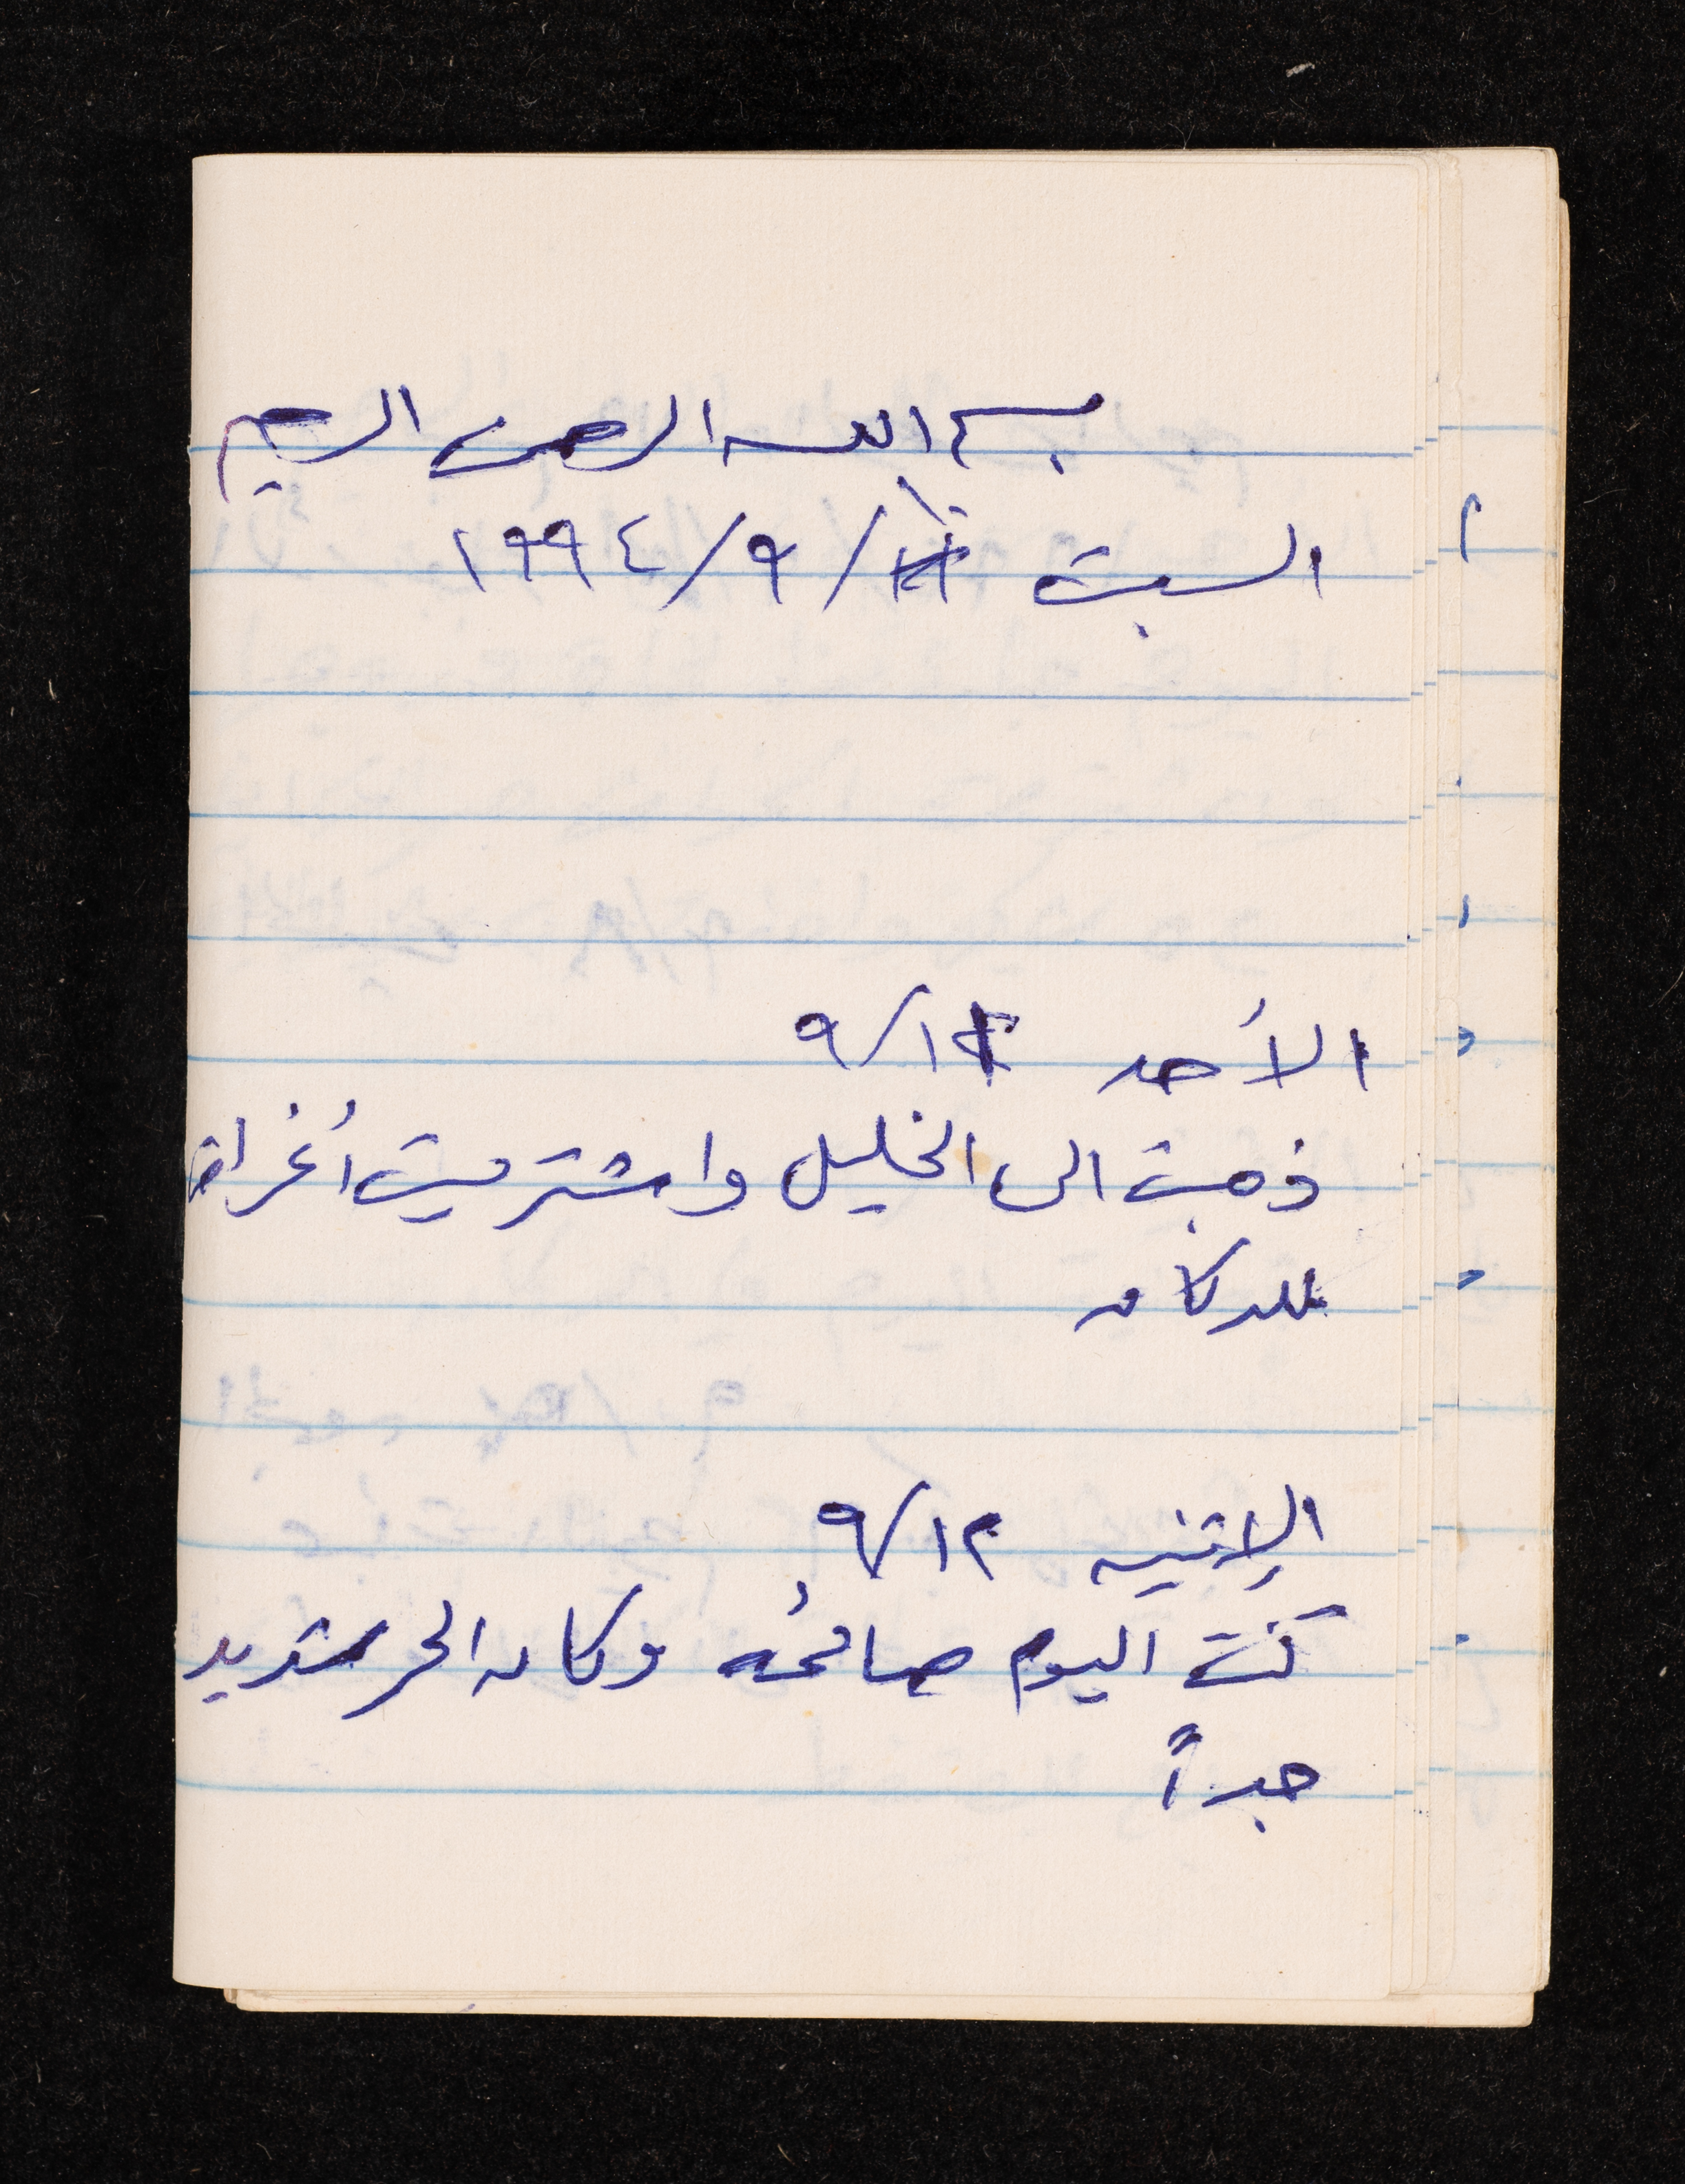 بسم الله الرحمن الرحيم
السبت ١٠/٩/١٩٩٤
الأحد ١١/٩
ذهبت الى الخليل واشتريت أغراض
للدكان
الإثنين ١٢/٩
كنت اليوم صائمه وكان الحر شديد
جداً